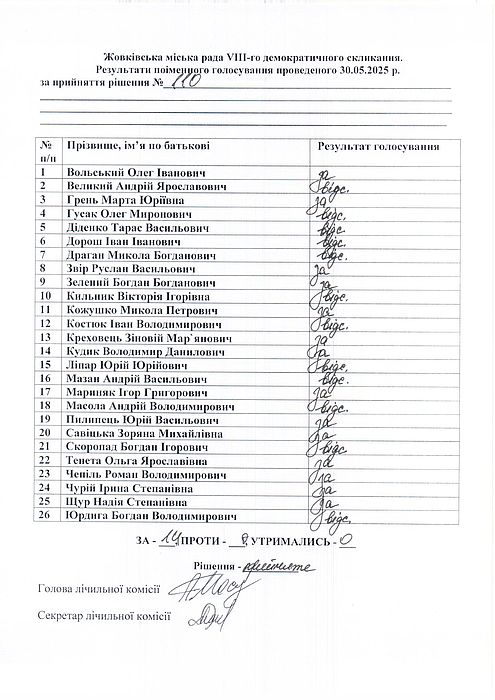 Жовківська міська рада VIII-го демократичного скликання.
Результати поіменного голосування проведеного 30.05.2025 р.
за прийняття рішення № 110
№ п/п Прізвище, ім’я по батькові Результат голосування
1 Вольський Олег Іванович за
2 Великий Андрій Ярославович відс.
3 Грень Марта Юріївна за
4 Гусак Олег Миронович відс.
5 Діденко Тарас Васильович відс.
6 Дорош Іван Іванович відс.
7 Драган Микола Богданович відс.
8 Звір Руслан Васильович за
9 Зелений Богдан Богданович за
10 Кильник Вікторія Ігорівна відс.
11 Кожушко Микола Петрович за
12 Костюк Іван Володимирович відс.
13 Креховець Зіновій Мар`янович за
14 Кудик Володимир Данилович за
15 Ліпар Юрій Юрійович відс.
16 Мазан Андрій Васильович відс.
17 Мариняк Ігор Григорович за
18 Масола Андрій Володимирович відс.
19 Пилипець Юрій Васильович за
20 Савіцька Зоряна Михайлівна за
21 Скоропад Богдан Ігорович відс.
22 Тенета Ольга Ярославівна за
23 Чепіль Роман Володимирович за
24 Чурій Ірина Степанівна за
25 Щур Надія Степанівна за
26 Юрдига Богдан Володимирович відс.
ЗА - 14, ПРОТИ - 0, УТРИМАЛИСЬ - 0
Рішення - прийняте
Голова лічильної комісії
Секретар лічильної комісії